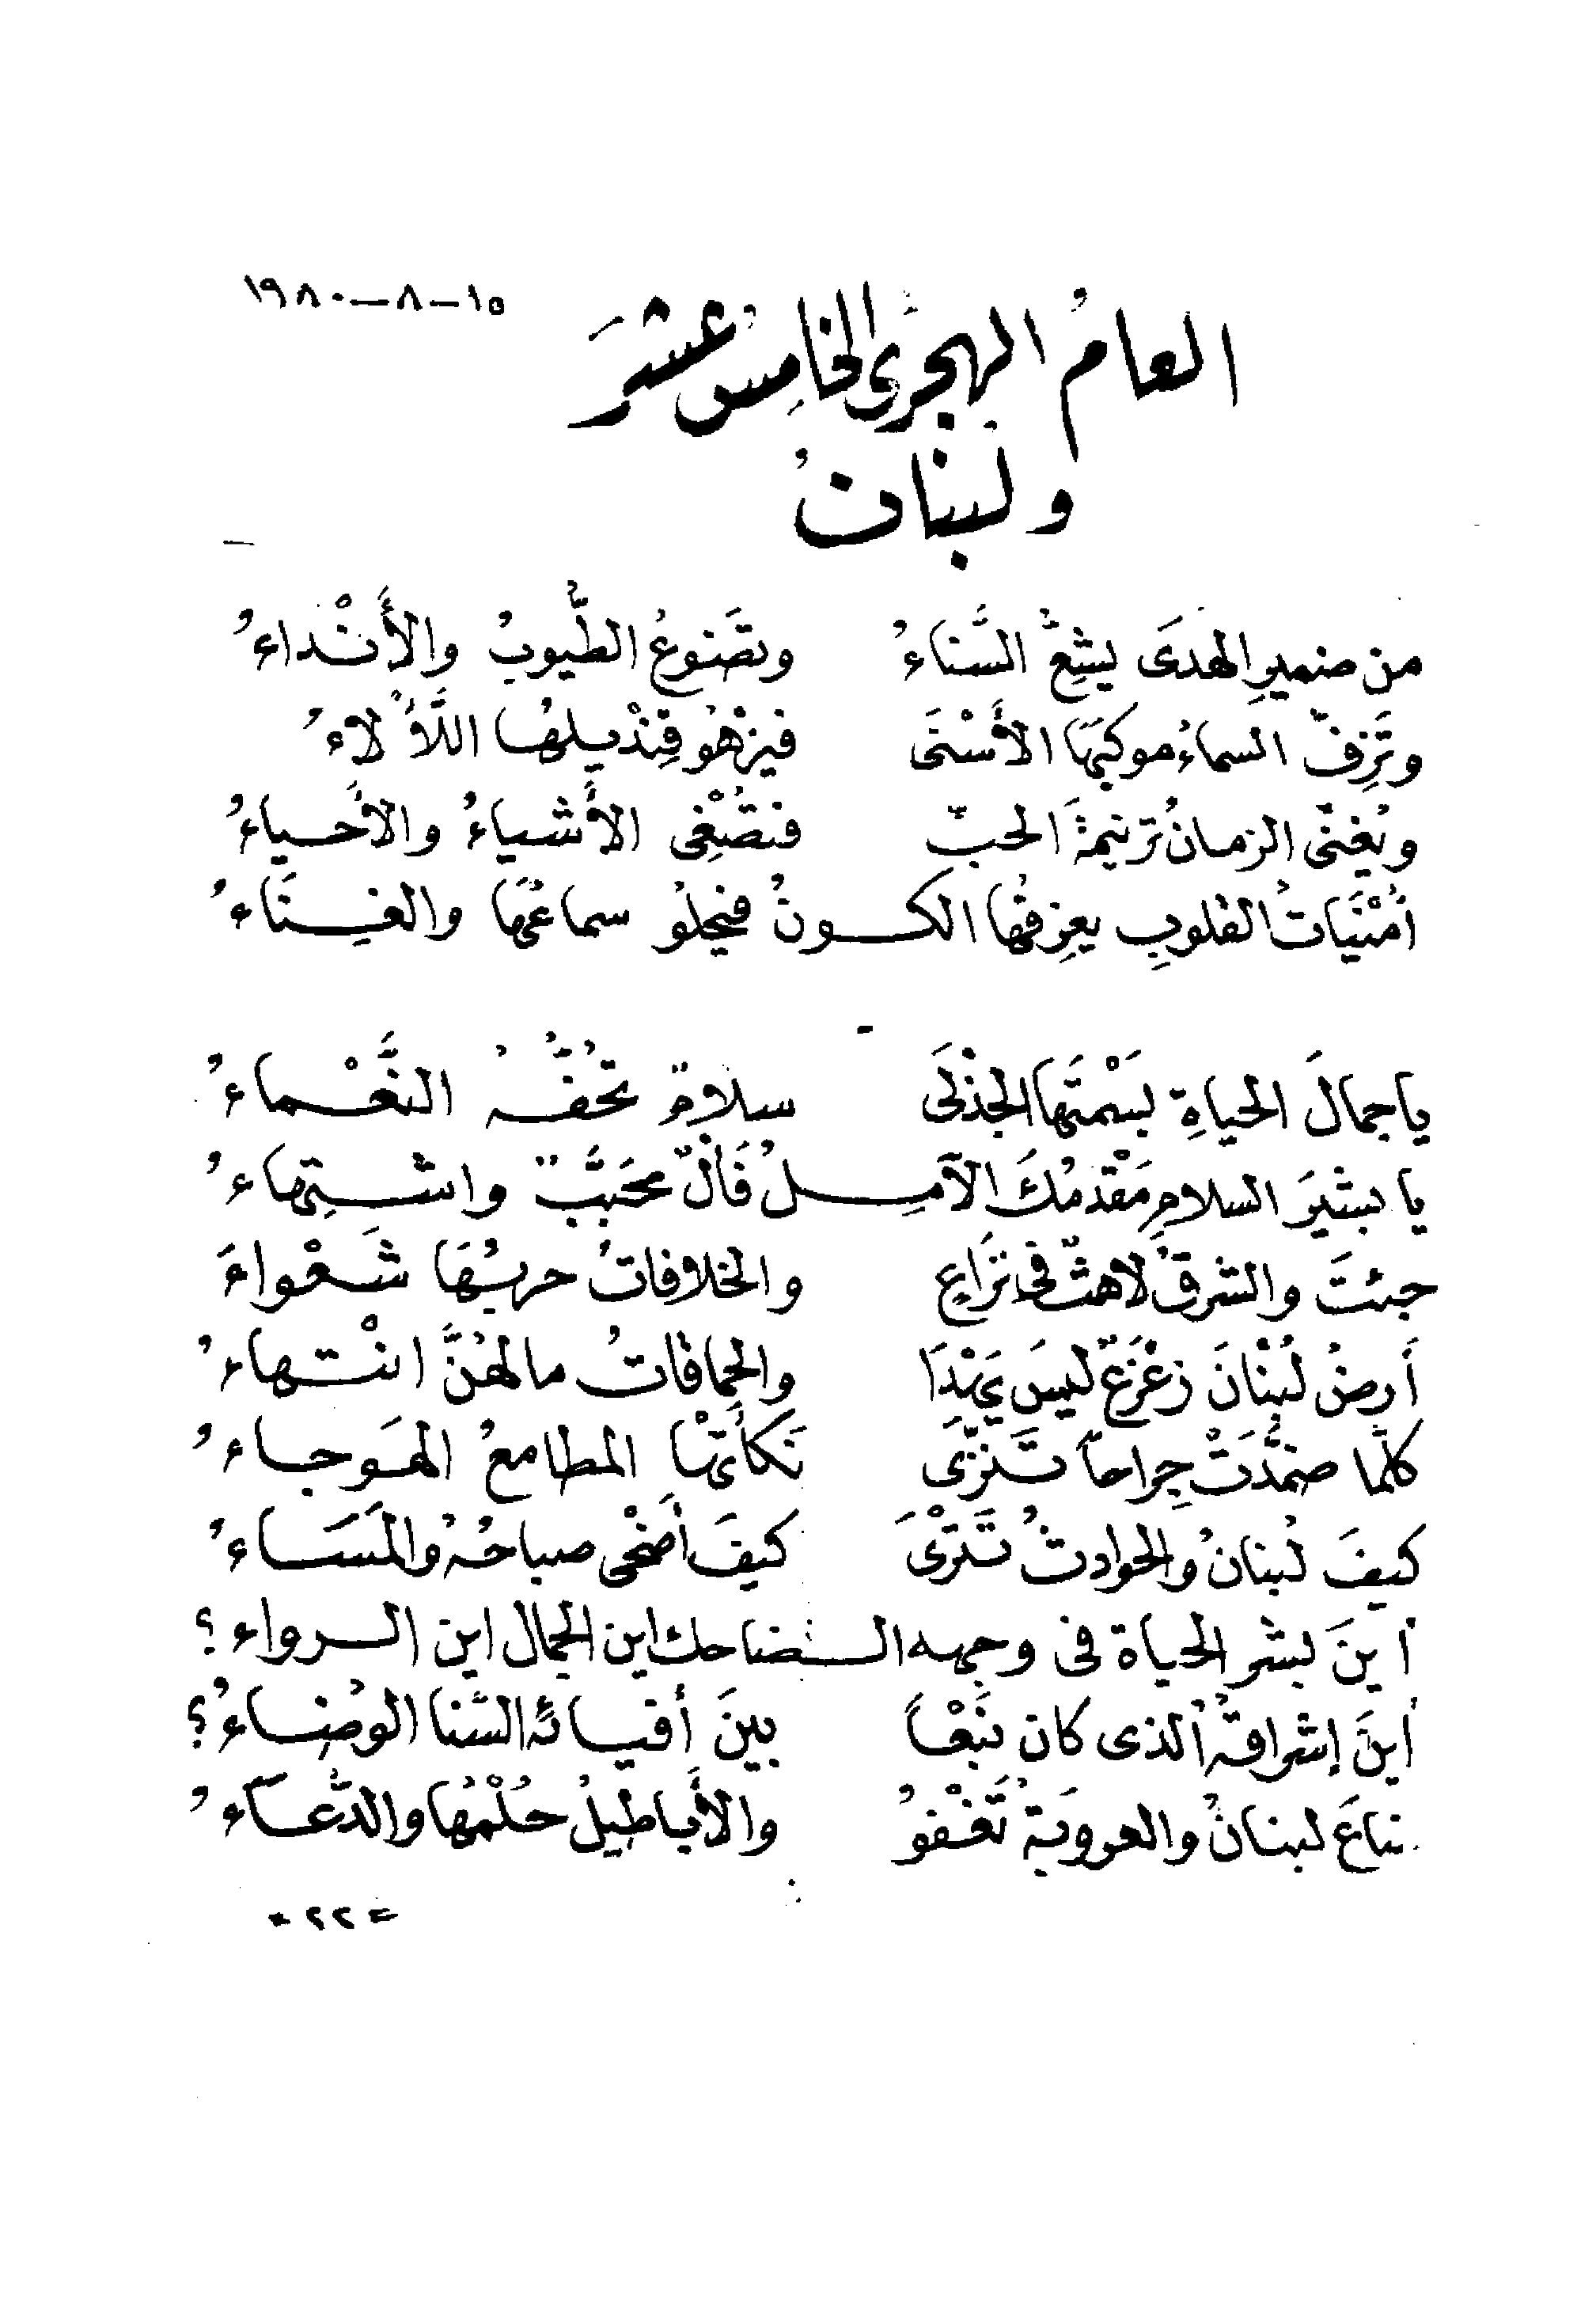 ١٥-٨-١٩٨٠
العامُ الهجرَّى الخامِسُ عشرَ
ولبنانُ
من ضميرِ الهدَى يشِعُّ السَّناءُ وتضَوعُ الطُّيوبُ والأَنْداءُ
وتَزِفّ السماءُ موكبَهَا الأَسْنَى فيزْهُو قِنْديلهُا اللَّأْلاءُ
ويُغنّى الزمانُ ترنيمةَ الحبّ فتصْغِى الأَشياءُ والأَحياءُ
أُمْنَيَاتُ القلوبِ يعزِفُهَا الكونُ فيحلوُ سماعُهَا والغِنَاءُ
يا جمالَ الحياةِ بَسْمَتَها الجذْلَى سلامٌ تحُفُّهُ النَّعْماءُ
يا بشيرَ السلامِ مَقْدَمُكَ الآمِلُ فَأْلٌ محَبَّبٌ واشتِهاءُ
جئتَ والشرقُ لاهثٌ فى نزَاعٍ والخلافاتُ حربُهَا شَعْواءَ
أَرضُ لُبْنَانَ زعْزَعٌ ليسَ يَهْدَا والحماقاتُ مالهُنَّ انْتهاءُ
كلَّما ضمَّدَتْ جِراحاً تَنزَّى نَكأَتهْا المطامعُ الهَوجاءُ
كيفَ لُبنانُ والحوادثُ تَتَرْىَ كيفَ أضْحى صباحُهُ والمَسَاءُ
أينَ بشر الحياة فى وجهه الضاحك اين الجمال اين الرواء؟
أينَ إشراقهُ الذى كان نَبْعاً بينَ أفيائهِ السَّنا الوضاءُ؟
ضاعَ لبنانُ والعروبَةُ تَغْفوُ والأَباطيلُ حُلْمُها والدُّعاءُ
= ٢٢ =